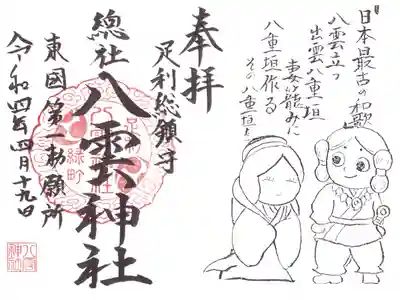 日本最古の和歌
八雲立つ
出雲八重垣
妻籠みに
八重垣作る
その八重垣を
奉拝
足利総鎮守
總社
八雲神社
東國第一勅願所
令和四年四月十九日